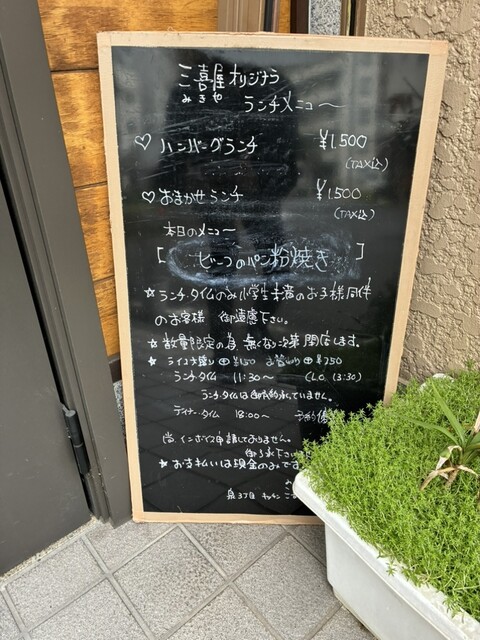 三喜屋オリジナラ
みきや ランチメニュ〜
♡ハンバーグランチ ¥1,500
(TAX込)
♡おまかせランチ ¥1,500
(TAX込)
本日のメニュー
[ ビーフのパン粉焼き ]
☆ランチ・タイムのみ小学生未満のお子様同伴
のお客様 御遠慮下さい。
★数量限定の為 無くなり次第閉店します。
★ライス大盛り ⊕¥150 ⊕¥250
ランチ・タイム 11:30〜 (L.O. 13:30)
ランチ・タイムは御予約承っていません。
ディナー・タイム 18:00〜 予約優
尚 インボイス申請しておりません。
御了承下さい
★お支払いは現金のみです
泉3丁目 キッチン